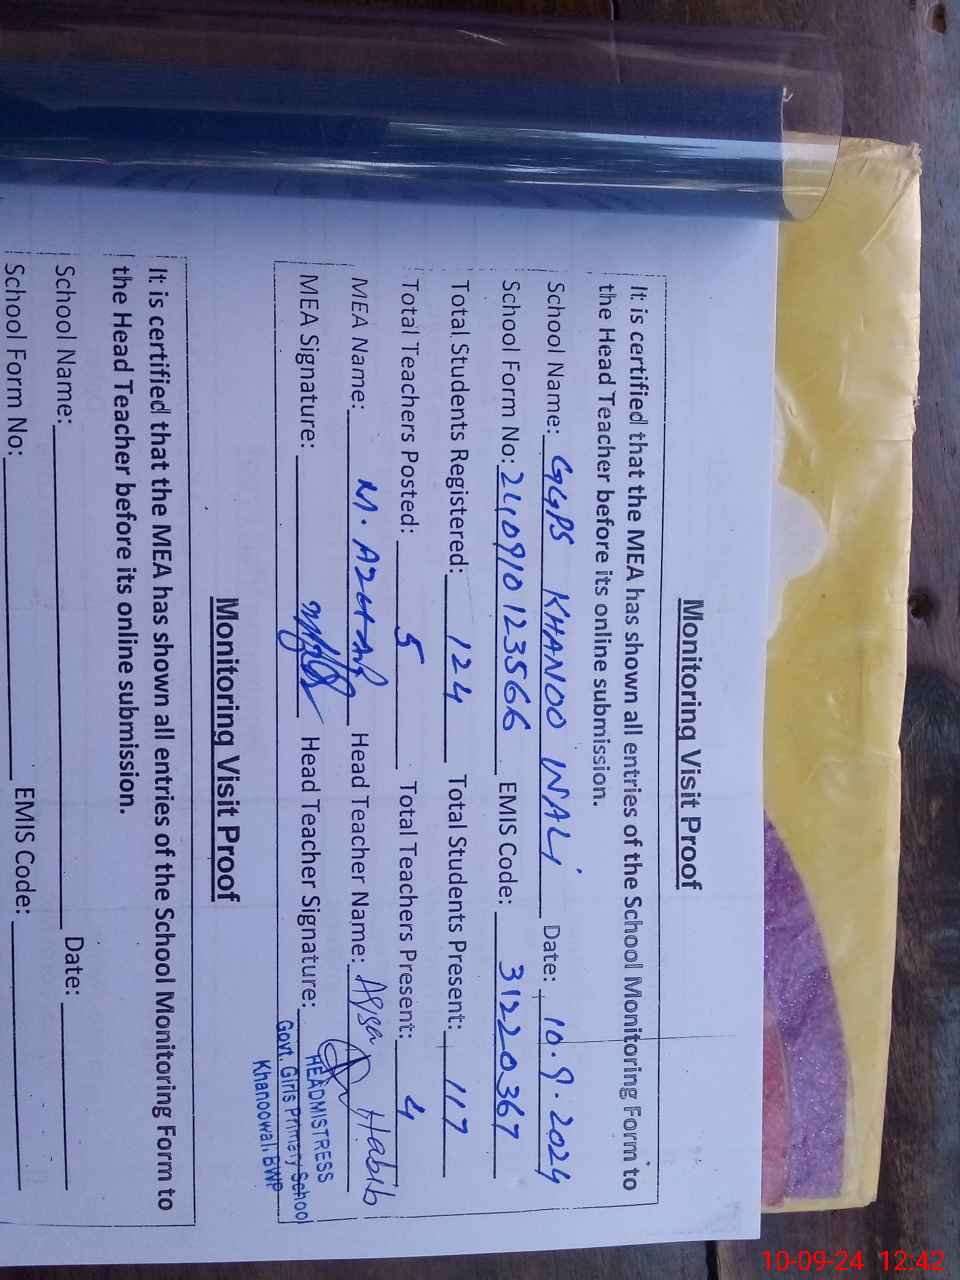 Monitoring Visit Proof
It is certified that the MEA has shown all entries of the School Monitoring Form to
the Head Teacher before its online submission.
School Name: GGPS KHANOO WALI Date: 10.9.2024
School Form No: 240910123566 EMIS Code: 31220367
Total Students Registered: 124 Total Students Present: 117
Total Teachers Posted: 5 Total Teachers Present: 4
MEA Name: M. Head Teacher Name: Habib
MEA Signature: Head Teacher Signature:
HEADMISTRESS
Govt. Girls Primary School
Khanoowali BWP
Monitoring Visit Proof
It is certified that the MEA has shown all entries of the School Monitoring Form to
the Head Teacher before its online submission.
School Name: Date:
School Form No: EMIS Code:
10-09-24 12:42